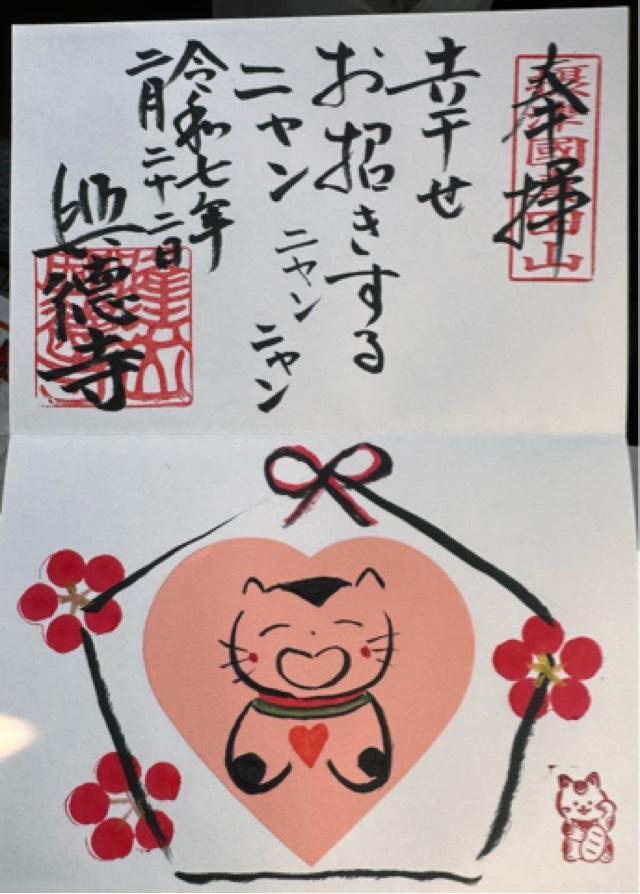 奉拝
幸せ
お招きする
ニャン ニャン ニャン
令和七年
二月二十二日
興徳寺